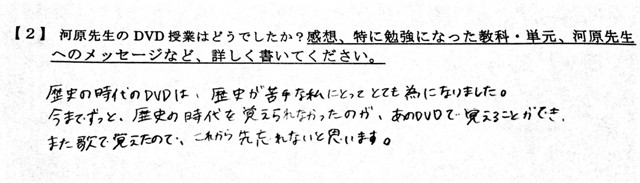 【2】 河原先生のDVD授業はどうでしたか？感想、特に勉強になった教科・単元、河原先生
へのメッセージなど、詳しく書いてください。
歴史の時代のDVDは、歴史が苦手な私にとってとても為になりました。
今までずっと、歴史の時代を覚えられなかったのが、あのDVDで覚えることができ、
また歌で覚えたので、これから先忘れないと思います。